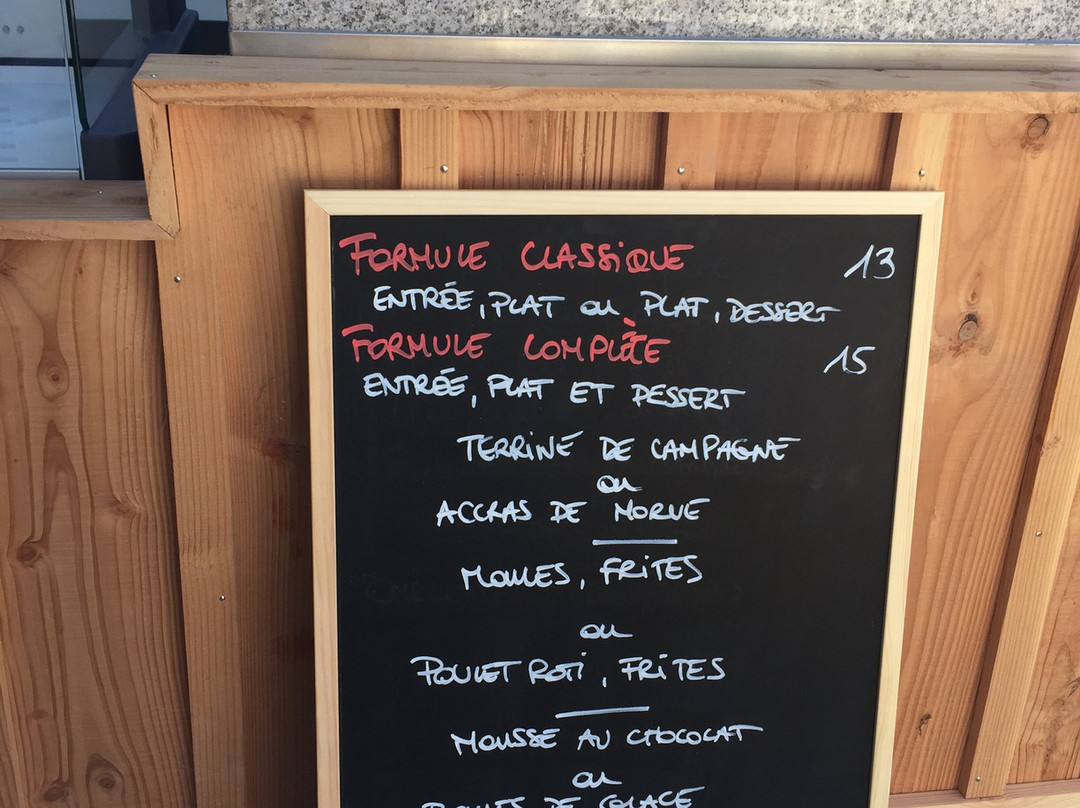 FORMULE CLASSIQUE 13
ENTRÉE, PLAT ou PLAT, DESSERT
FORMULE COMPLÈTE 15
ENTRÉE, PLAT ET DESSERT
TERRINE DE CAMPAGNE
ou
ACCRAS DE MORUE
MOULES, FRITES
ou
POULET ROTi, FRITES
MOUSSE AU CHOCOLAT
ou
BOULES DE GLACE